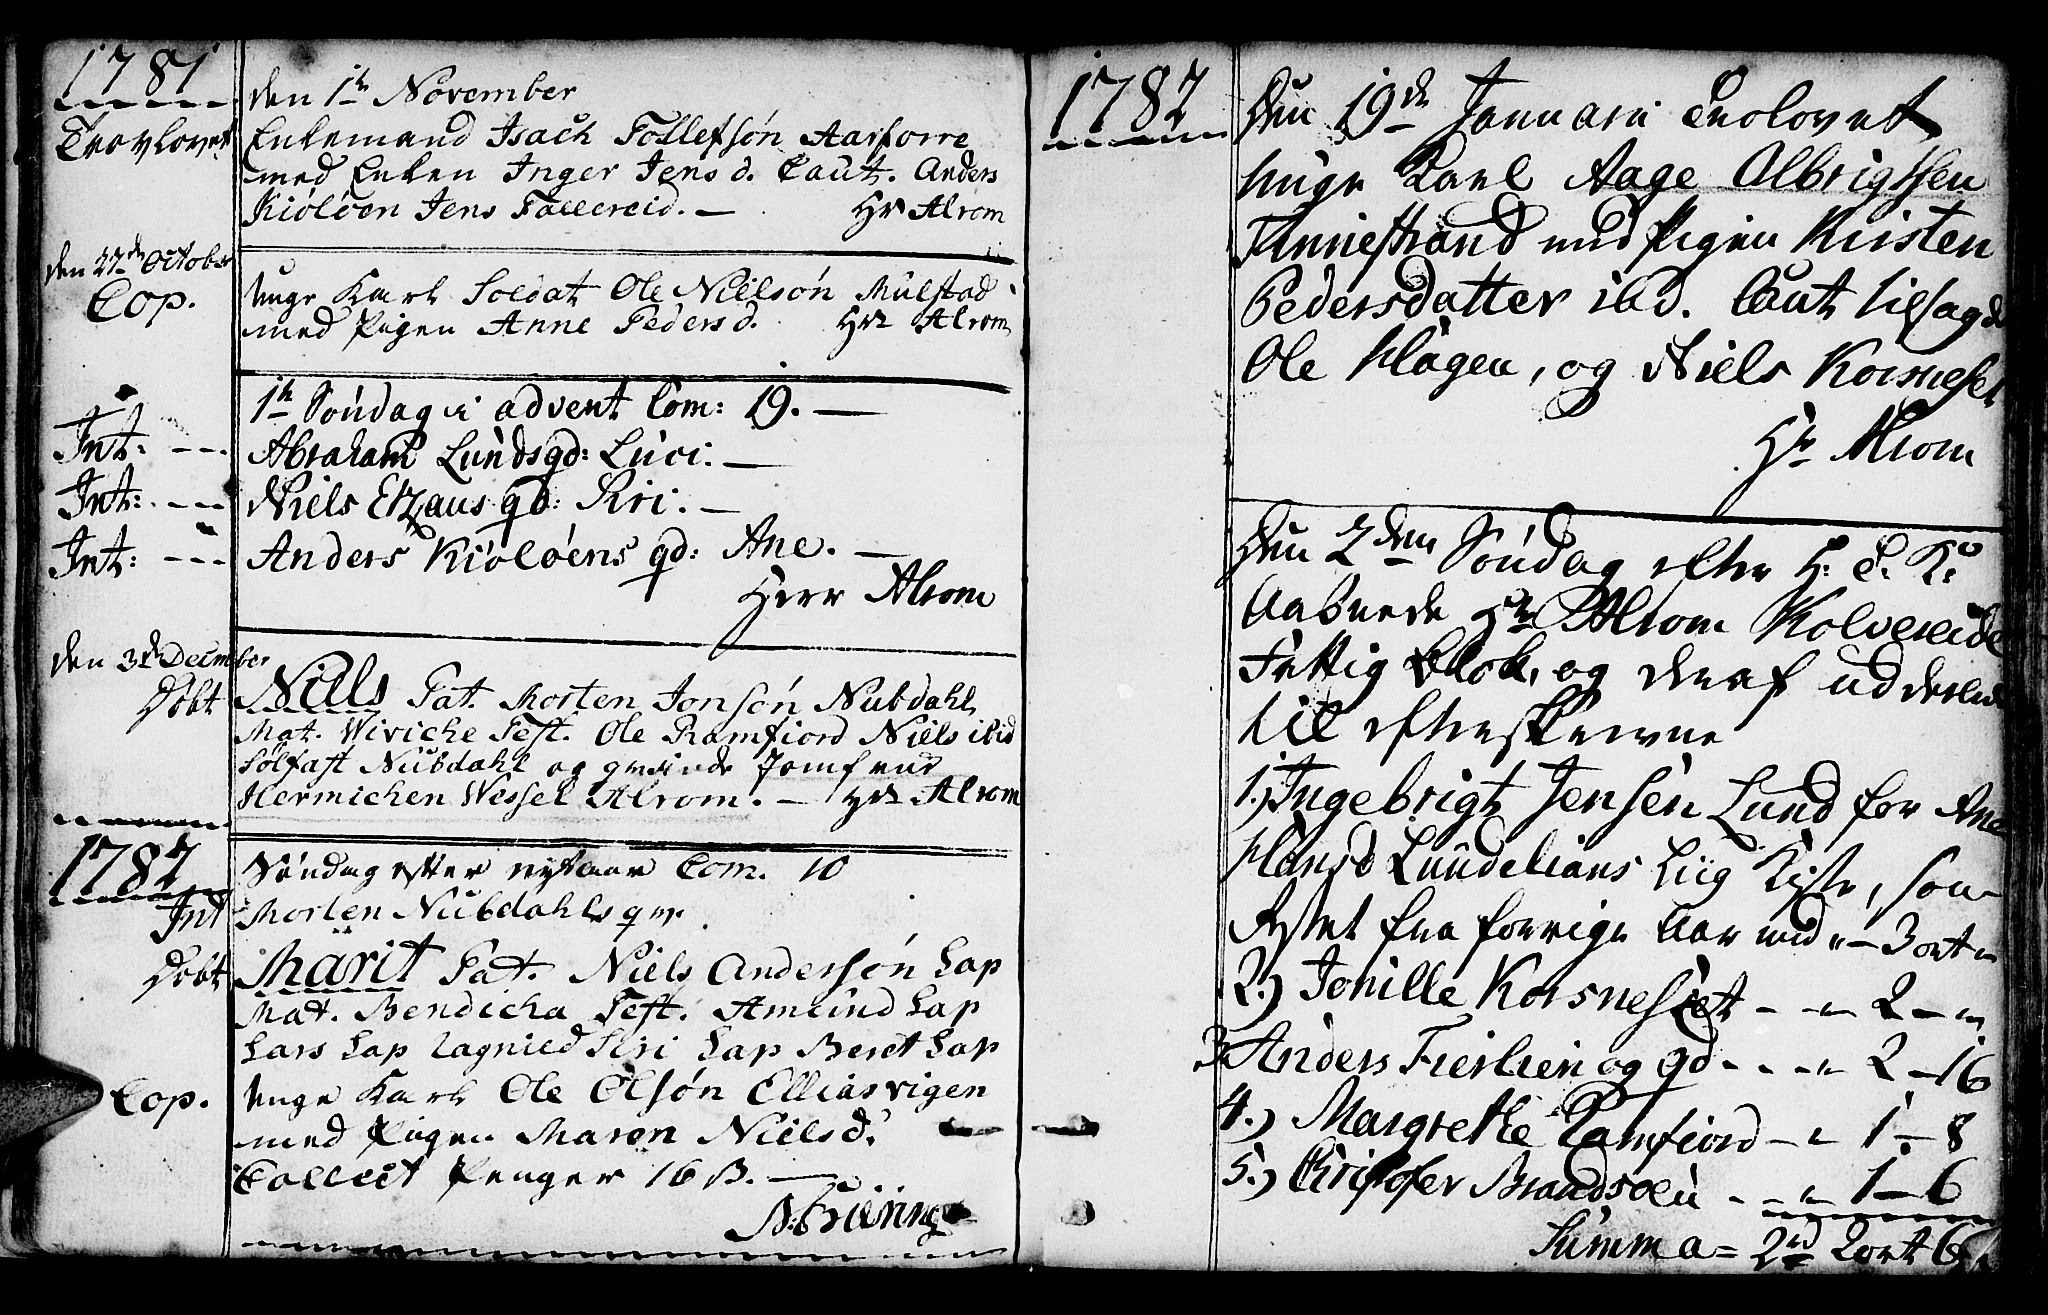 1781
den 1te November
Trovlovet
Enkemand Isach Tollefsøn Aarforre
med Enken Inger Jens d. Caut. Anders
Kiøløen Jens Fallereid. — Hr Alrom
den 27de October
Cop.
unge Karl Soldat Ole Nielsøn Mulstad
med Pigen Anne Peders d. Hr Alrom
1te Søndag i advent Com: 19. —
Int: --- Abraham Lundsgd: Luci. —
Int: --- Niels Etzaus gd: Siri. —
Int: --- Anders Kiøløens gd: Ane. —
Herr Alrom
den 3de December
Døbt Niels Pat. Morten Jonsøn Nubdahl
Mat. Wiviche Test. Ole Ramfiord Niels ibid
Solfast Nubdahl og Jomfrue
Hermichen Wessel Alrom. — Hr Alrom
1782
Søndag efter nytaar Com. 10
Int Morten Nubdahls qv.
Døbt Marit Pat. Niels Andersøn Lap
Mat. Bendicha Test. Amund Lap
Lars Lap Siri Lap Beret Lap
Cop. unge Karl Ole Olsøn Elliasvigen
med Pigen Maren Niels d.
Collect Penger 16 β. —
1782
Den 19de Januari Trolovet
unge Karl Aage Olbrigtsen
Finnestrand med Pigen Kirsten
Pedersdatter ibd. Caut tilsagde
Ole Hågen, og Niels Korsneset
Hr Alrom
Den 2den Søndag efter H. 3. K.
aabnede Hr Alrom Kolvereids
Fattig Blok, og deraf uddeelede
til efterskrevne
1.) Ingebrigt Jensen Lund for Ane
Hansd Lundelians Liig Kiste, som
restet fra forrige Aar med " — 3 ort "
2.) Tonille Korsneset - - " - 2 - "
3. Anders Fierlien og gd - - - " - 2 - 16
4.) Margrethe Ramfiord - " 1 - 8
5.) Christofer Brandsøen - - " - 1 - 6
Summa = 2rd 2 ort 6